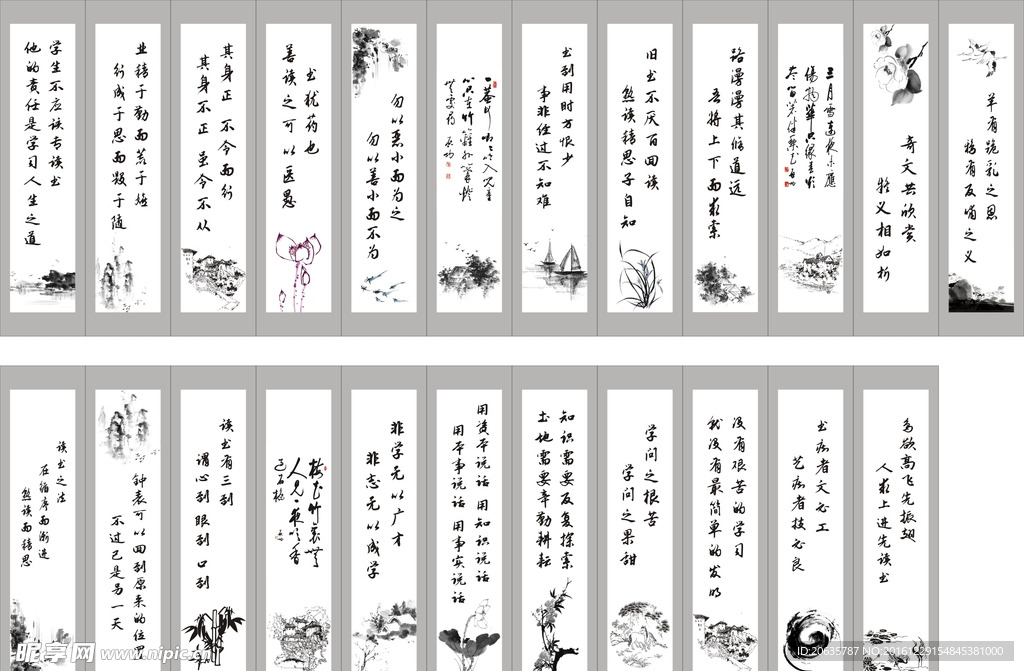 学生不应该专读书
他的责任是学习人生之道
业精于勤而荒于嬉
行成于思而毁于随
其身正 不令而行
其身不正 虽令不从
书犹药也
善读之可以医愚
勿以恶小而为之
勿以善小而不为
书到用时方恨少
事非经过不知难
旧书不厌百回读
熟读精思子自知
路漫漫其修道远
吾将上下而求索
奇文共欣赏
疑义相如析
羊有跪乳之恩
鸦有反哺之义
读书之法
在循序而渐进
熟读而精思
钟表可以回到原来的位置
不过已是另一天
读书有三到
谓心到 眼到 口到
非学无以广才
非志无以成学
用资本说话 用知识说话
用本事说话 用事实说话
知识需要反复探索
土地需要辛勤耕耘
学问之根苦
学问之果甜
没有艰苦的学习
就没有最简单的发明
书痴者文必工
艺痴者技必良
鸟欲高飞先振翅
人求上进先读书
昵享网 www.nipic.cn
ID:20635787 NO:20161229154845381000